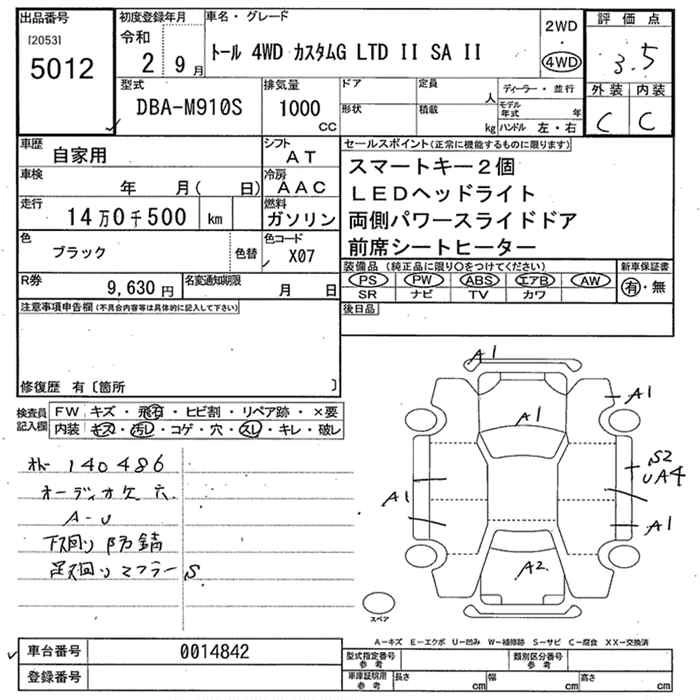 出品番号
[2053]
5012
初度登録年月
令和
2 9月
車名・グレード
トール 4WD カスタムG LTD II SA II
2WD
・
4WD
評価点
3.5
外装 内装
C C
型式
DBA-M910S
排気量
1000
cc
ドア
形状
定員
人
積載
kg
ディーラー・並行
モデル年式 年
ハンドル 左・右
車歴
自家用
シフト
AT
車検
年 月( 日)
冷房
AAC
走行
14万0千500 km
燃料
ガソリン
色
ブラック
色替
色コード
X07
R券
9,630円
名変通知期限
月 日
セールスポイント(正常に機能するものに限ります)
スマートキー2個
LEDヘッドライト
両側パワースライドドア
前席シートヒーター
装備品(純正品に限り○をつけてください)
PS PW ABS エアB AW
SR ナビ TV カワ
新車保証書
有・無
後日品
注意事項申告欄(不具合内容等は具体的に記入して下さい)
修復歴 有〔箇所 〕
検査員記入欄
FW キズ・飛石・ヒビ割・リペア跡・×要
内装 キズ・汚レ・コゲ・穴・スレ・キレ・破レ
140486
オーディオケ 穴
A-U
下回り 防錆
足回り マフラー S
A1
A1
A1
A1
S2
UA4
A1
A2
スペア
A−キズ E−エクボ U−凹み W−補修跡 S−サビ C−腐食 XX−交換済
車台番号
0014842
登録番号
型式指定番号
参考
類別区分番号
参考
車庫証明用
参考
長さ cm
幅 cm
高さ cm